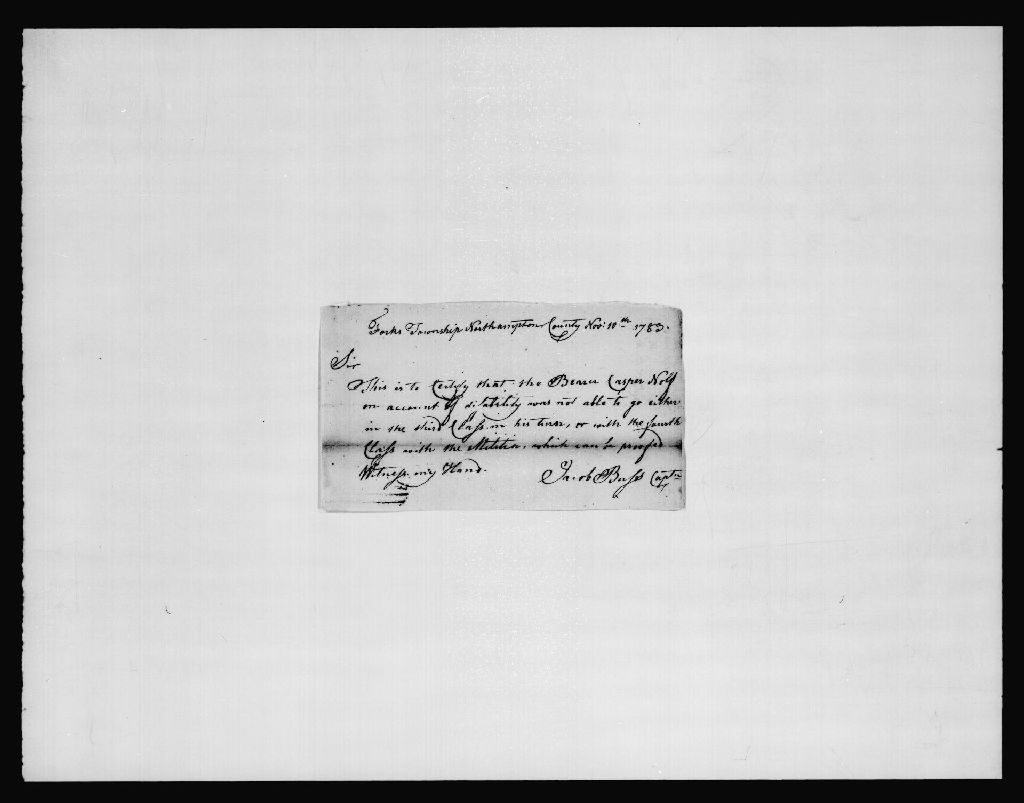 Forks Township Northampton County Nov: 10th 1783.
Sir
This is to Certify that the Bearer Casper Nolf
on account of disability was not able to go either
in the third Class in his turn, or with the fourth
Class with the Militia, which can be proofed
Witness my Hand.
Jacob Capt: